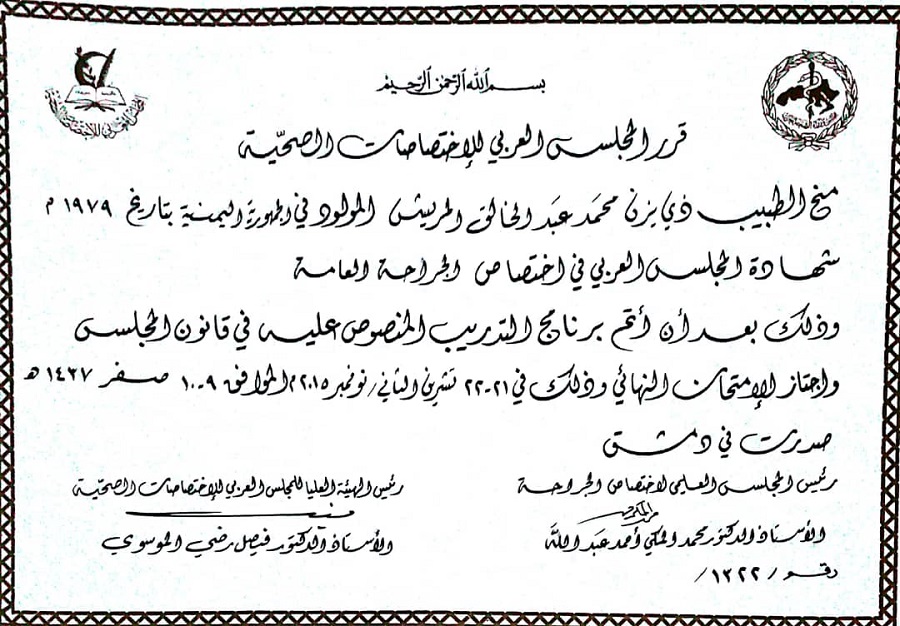 بسم الله الرحمن الرحيم
قرر المجلس العربي للإختصاصات الصحيّة
منح الطبيب ذي يزن محمد عبد الخالق المريش المولود في الجمهورية اليمنية بتاريخ ١٩٧٩ م
شهادة المجلس العربي في اختصاص الجراحة العامة
وذلك بعد أن أتم برنامج التدريب المنصوص عليه في قانون المجلس
واجتاز الإمتحان النهائي وذلك في ٢١-٢٢ تشرين الثاني/نوفمبر ٢٠١٥ م الموافق ٩-١٠ صفر ١٤٣٧ هـ
صدرت في دمشق
رئيس المجلس العلمي لاختصاص الجراحة
الأستاذ الدكتور محمد المكي أحمد عبد الله
رقم /١٣٢٢/
رئيس الهيئة العليا للمجلس العربي للإختصاصات الصحيّة
الأستاذ الدكتور فيصل رضي الموسوي